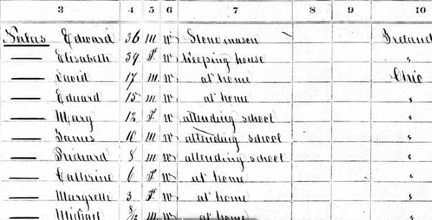 3 4 5 6 7 8 9 10
Edward 36 m W Stone mason Ireland
Elisabeth 39 f W Keeping house "
David 17 m W at home Ohio
Edward 15 m W at home "
Mary 13 f W attending school "
James 10 m W attending school "
Richard 8 m W attending school "
Catherine 6 f W at home "
Margrette 3 f W at home "
Michael m W at home "